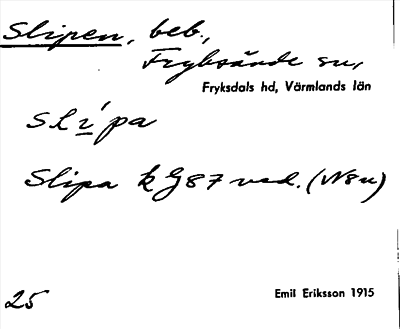 Slipen, beb.,
Fryksände sn,
Fryksdals hd, Värmlands län
slìpa
Slipa k G87 vsd. (N8u)
25
Emil Eriksson 1915